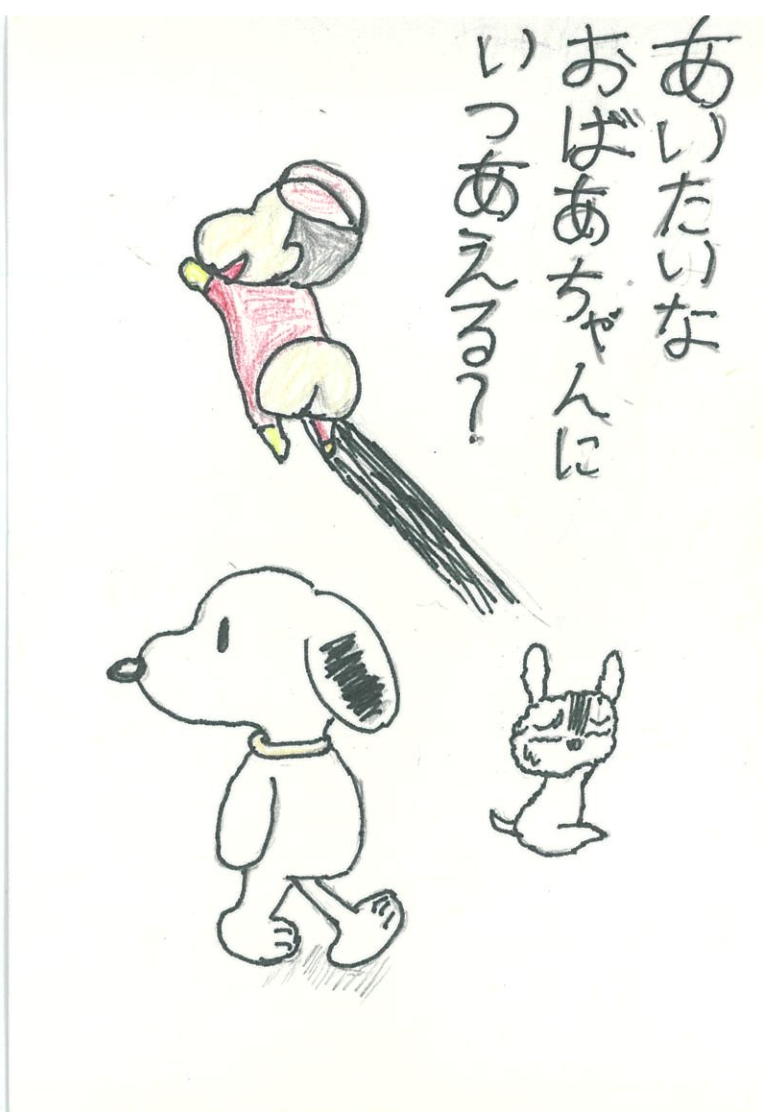 あいたいな
おばあちゃんに
いつあえる?